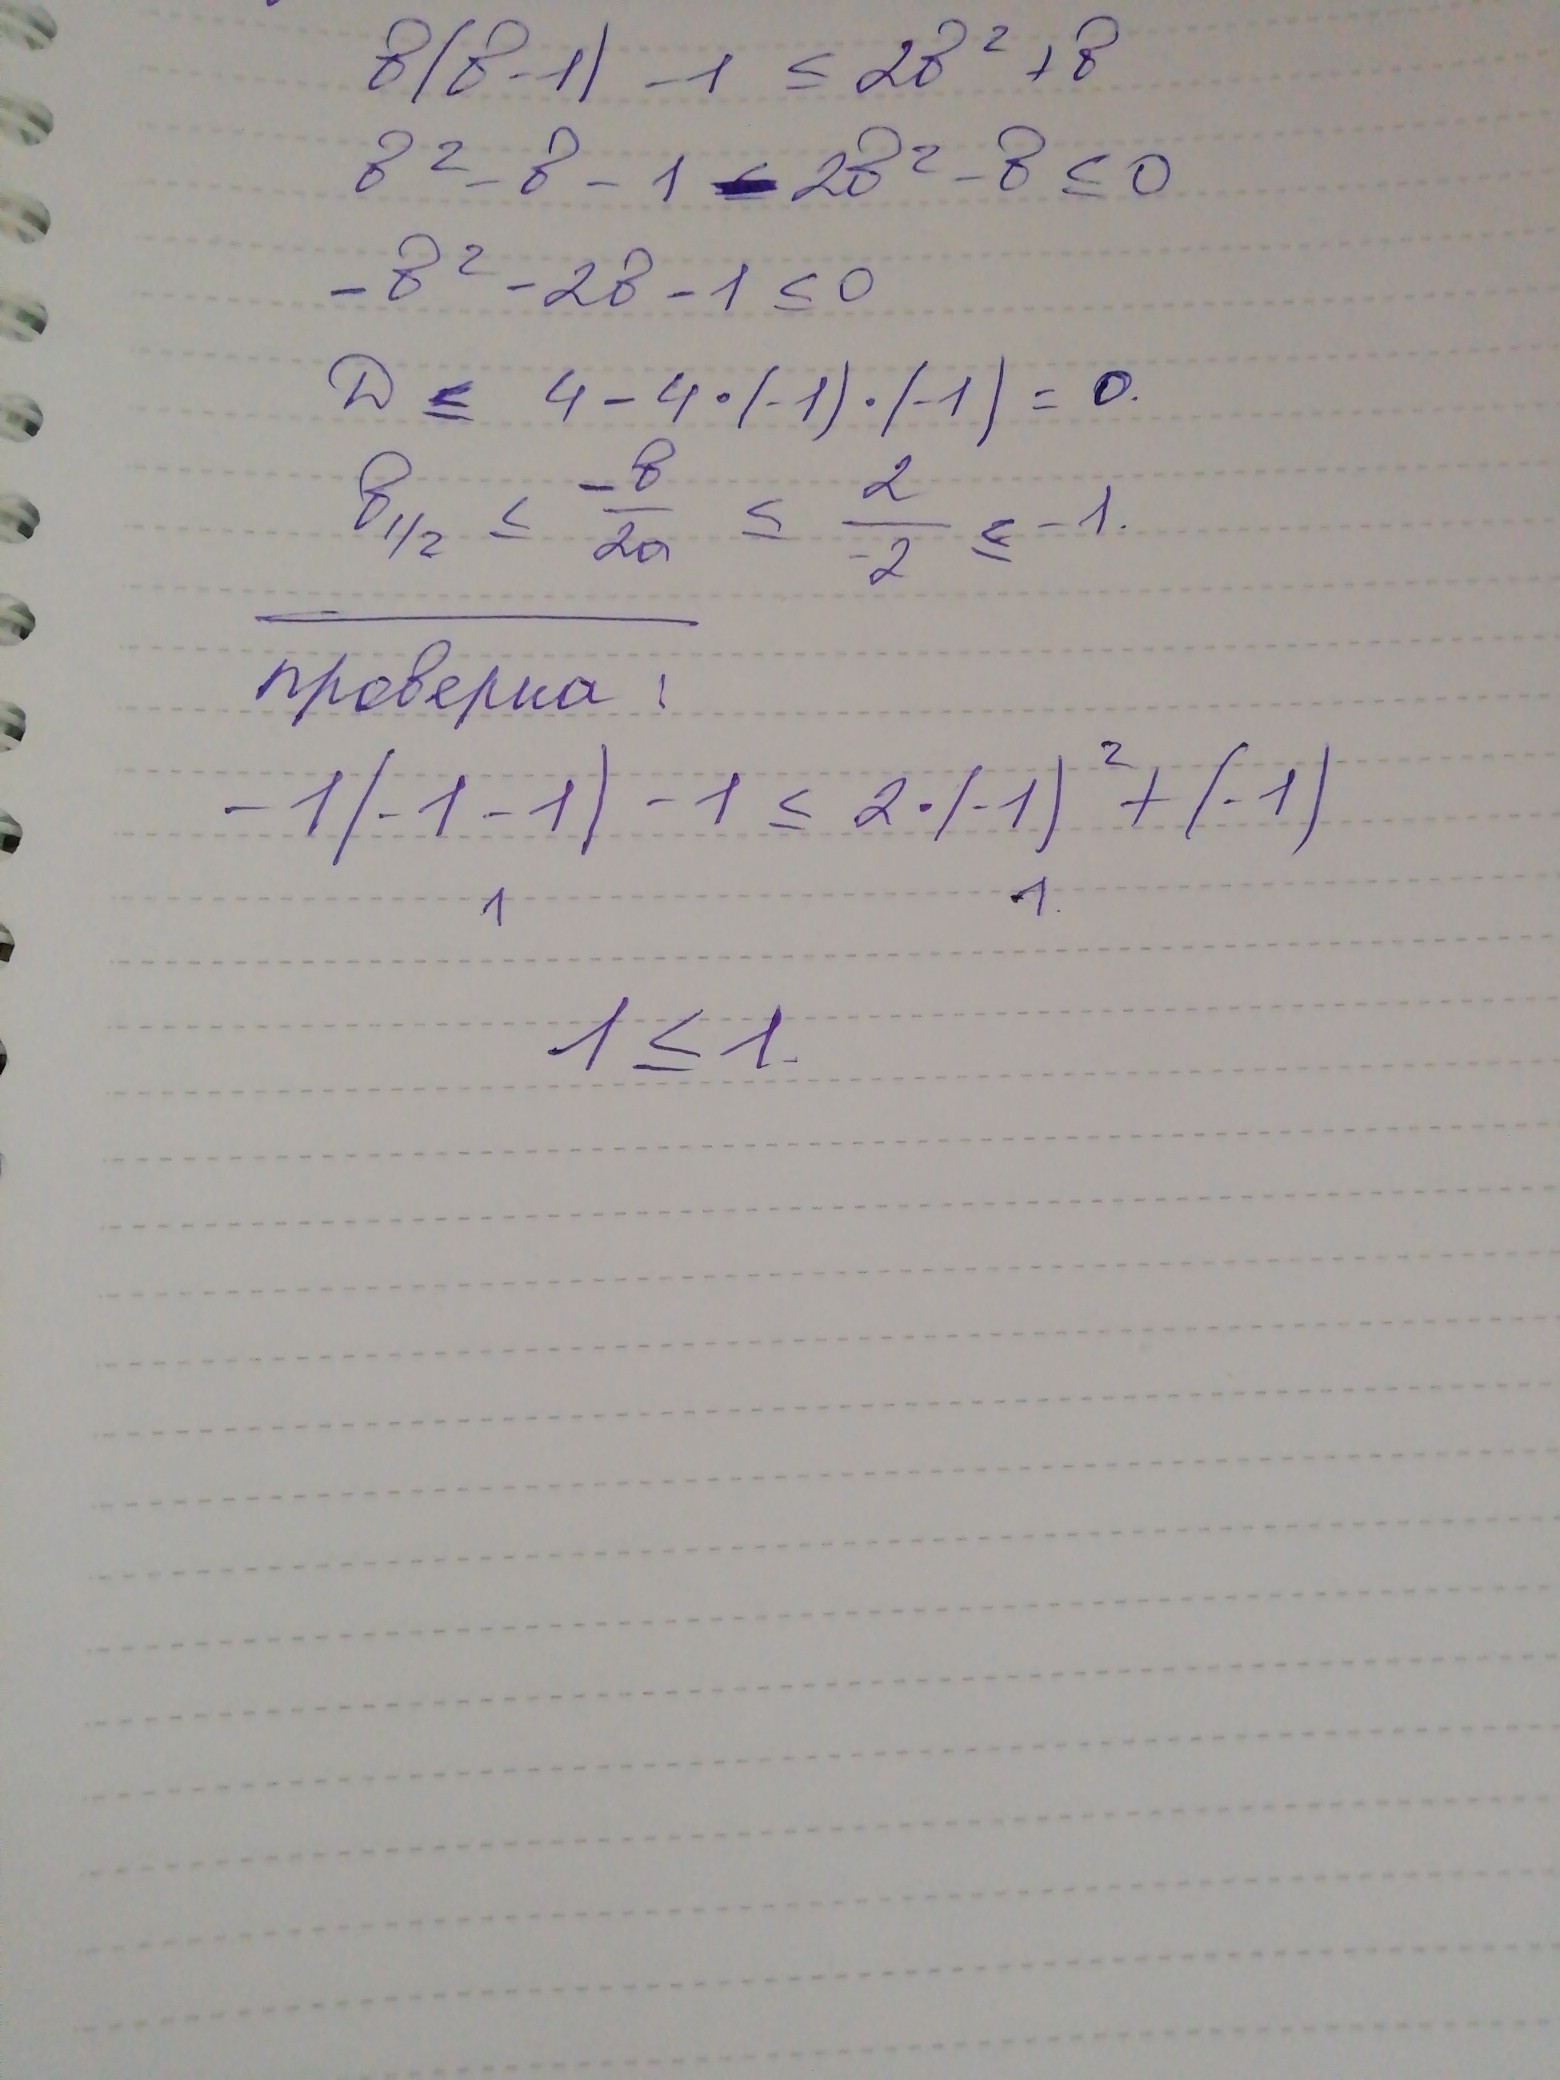 в(в-1) -1 ≤ 2в² + в
в² - в - 1 - 2в² - в ≤ 0
-в² - 2в - 1 ≤ 0
D ≤ 4 - 4·(-1)·(-1) = 0.
в₁/₂ ≤ -в/2а ≤ 2/-2 ≤ -1.
проверка:
-1(-1-1) -1 ≤ 2·(-1)² + (-1)
1 1.
1 ≤ 1.